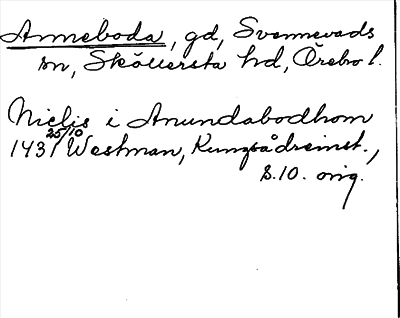 Anneboda, gd, Svennevads
sn, Sköllersta hd, Örebo l.
Niclis i Anundabodhom
25/10
1431 Westman, Kungsådreinst.,
s.10. orig.